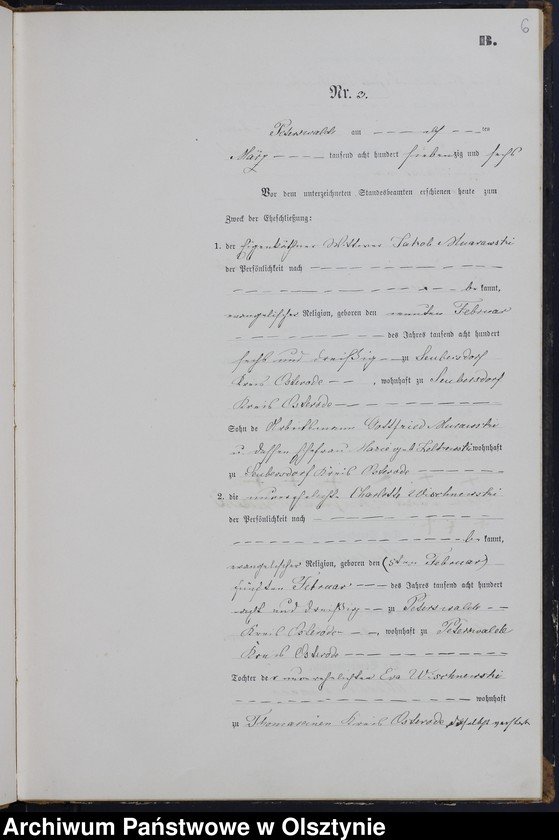 6
B.
Nr. 3.
Peterswalde am — — — elf — — ten
März — — — — tausend acht hundert siebenzig und sechs
Vor dem unterzeichneten Standesbeamten erschienen heute zum
Zweck der Eheschließung:
1. der Eigenkäthner Wittwer Jakob Murawski
der Persönlichkeit nach — — — — — — — —
— — — — — — — — — — be kannt,
evangelischer Religion, geboren den neunten Februar
— — — — — — — — des Jahres tausend acht hundert
sechs und dreißig — zu Seubersdorf
Kreis Osterode — — , wohnhaft zu Seubersdorf
Kreis Osterode — — — — — — — —
Sohn de Gottfried Murawski
u. dessen Ehefrau Marie geb. wohnhaft
zu Seubersdorf Kreis Osterode — — — — —
2. die unverehelichte Charlotte Wischnewski
der Persönlichkeit nach — — — — — — — —
— — — — — — — — — — be kannt,
evangelischer Religion, geboren den (5ten Februar)
fünften Februar — — — des Jahres tausend acht hundert
acht und dreißig — — zu Peterswalde — —
Kreis Osterode — — , wohnhaft zu Peterswalde
Kreis Osterode — — — — — — — —
Tochter der unverehelichten Eva Wischnewski
— — — — — — — — — — wohnhaft
zu Thomareinen Kreis Osterode, daselbst verstorben
Archiwum Państwowe w Olsztynie